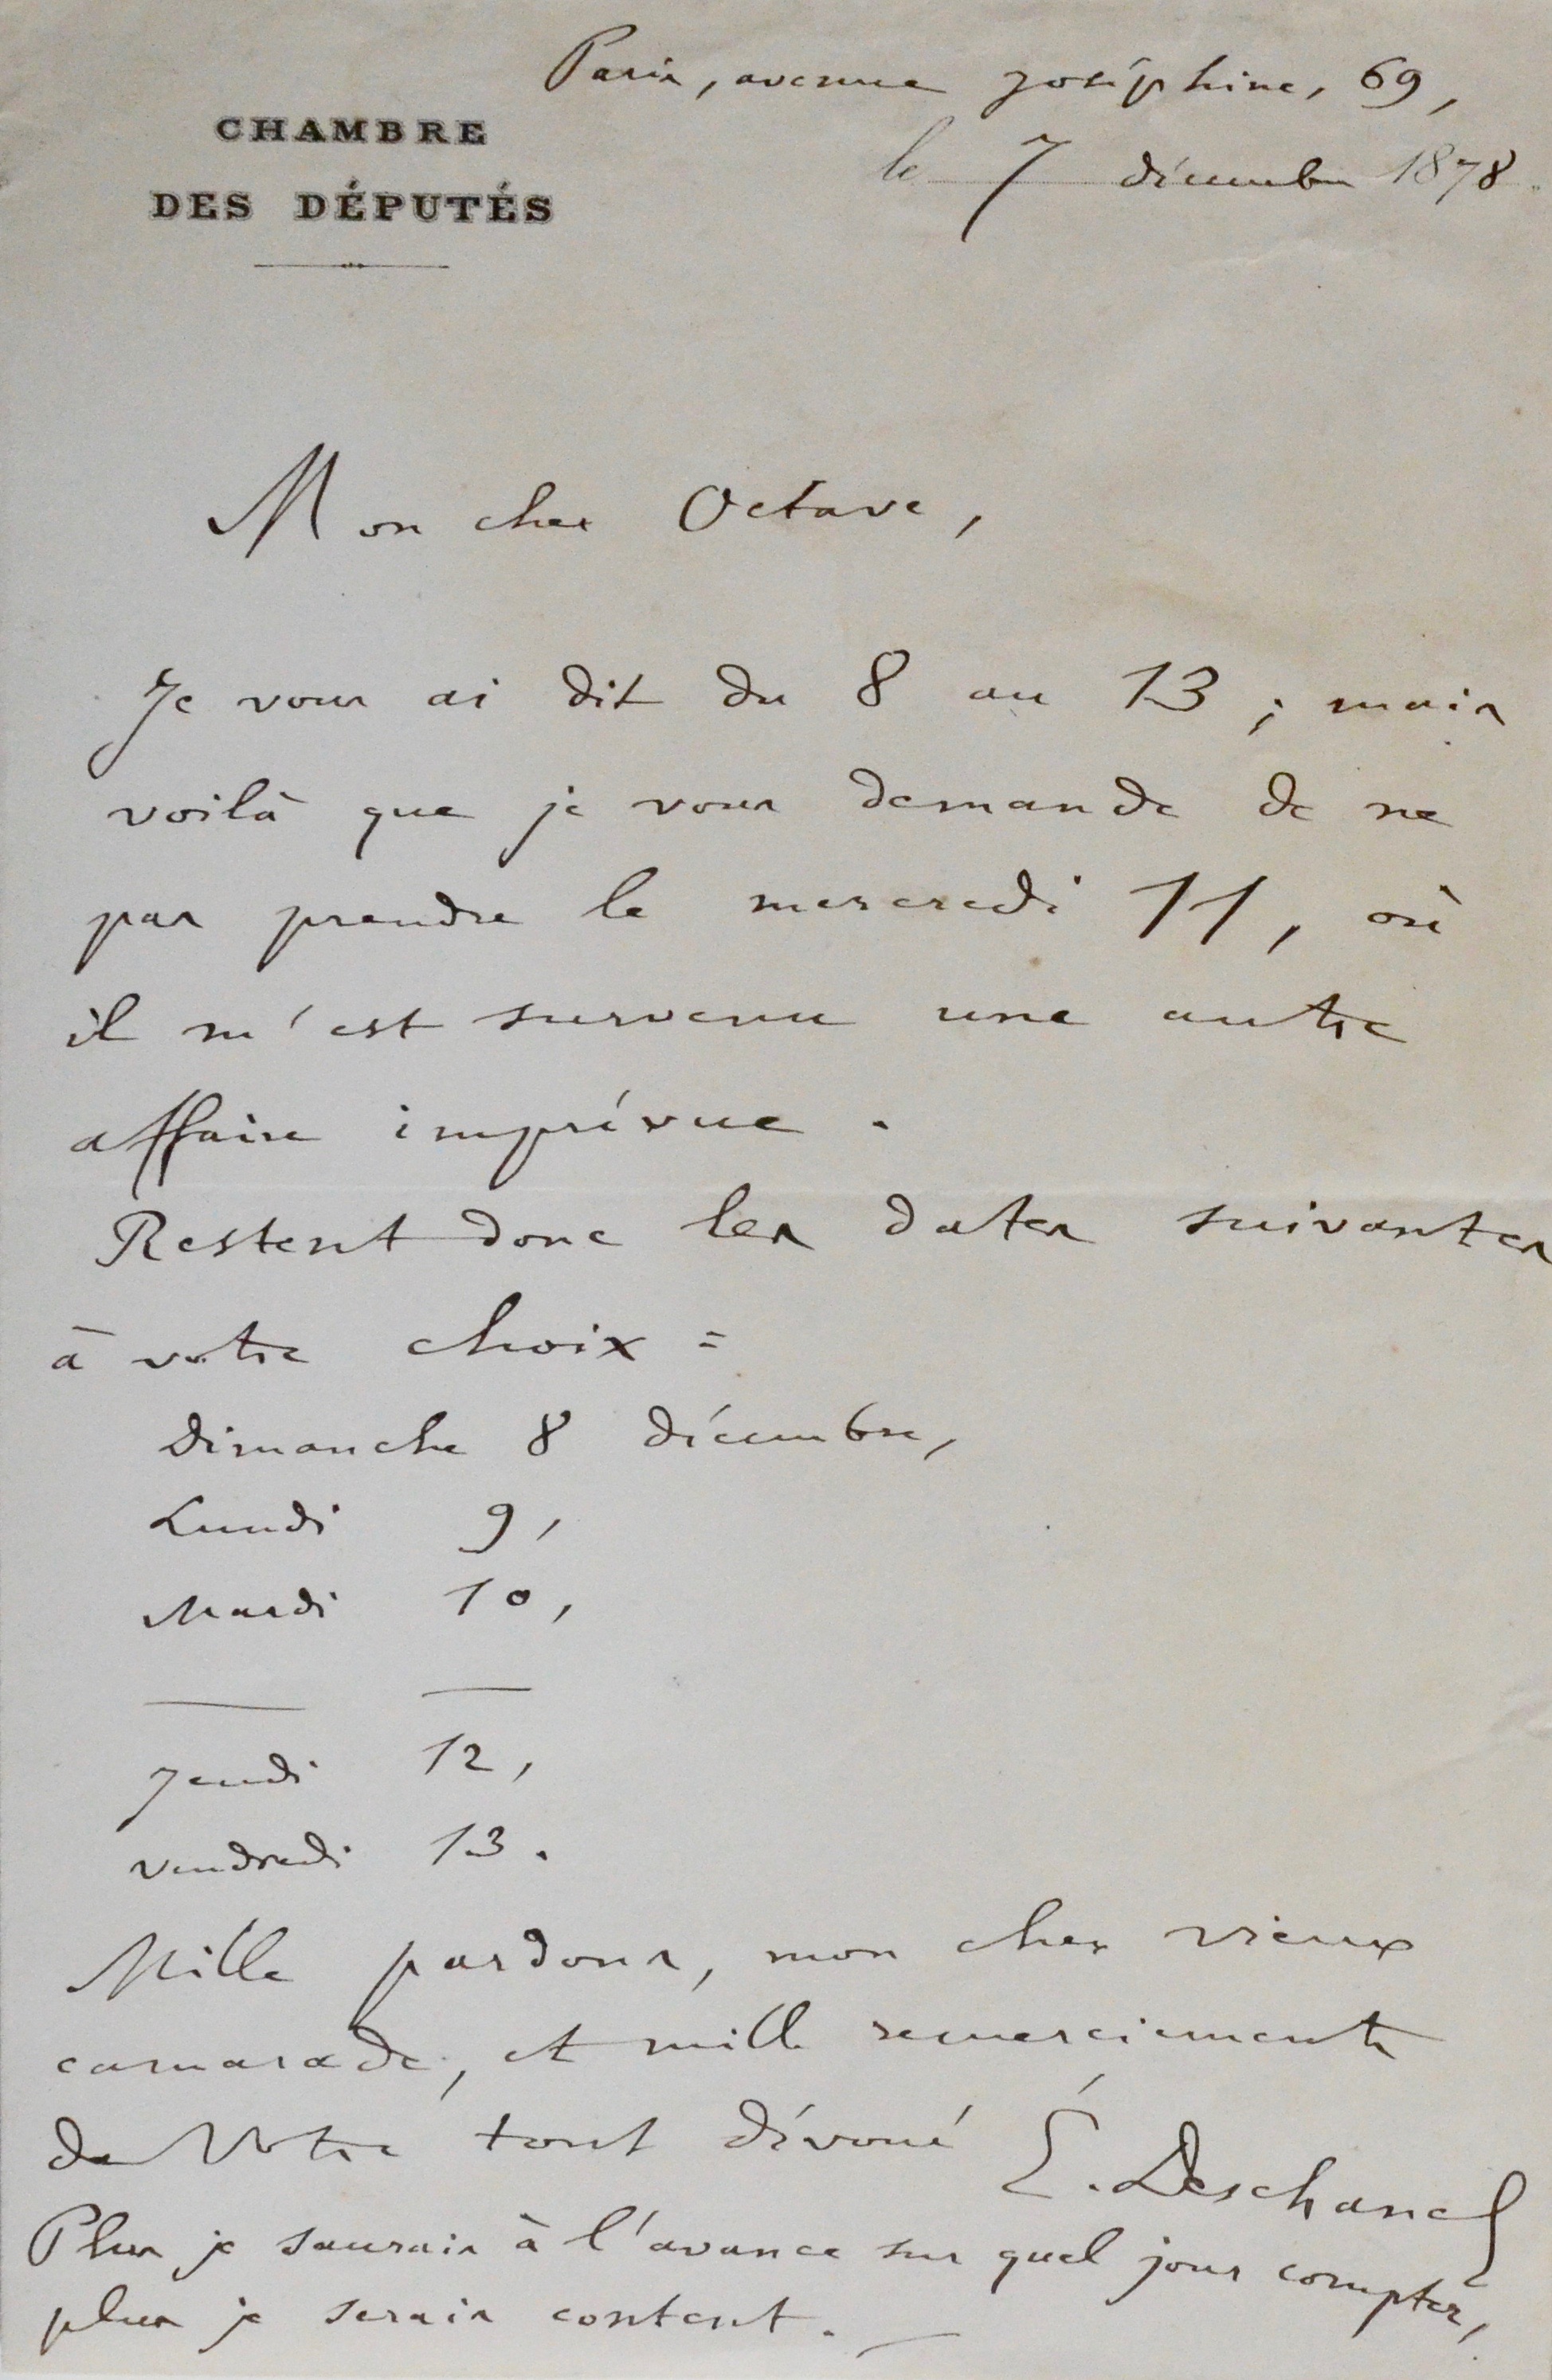 Paris, avenue Joséphine, 69,
CHAMBRE
DES DÉPUTÉS
le 7 décembre 1878.
Mon cher Octave,
Je vous ai dit du 8 au 13 ; mais
voilà que je vous demande de ne
pas prendre le mercredi 11, où
il m'est survenu une autre
affaire imprévue.
Restent donc les dates suivantes
à votre choix =
Dimanche 8 décembre,
Lundi 9,
Mardi 10,
— —
Jeudi 12,
vendredi 13.
Mille pardons, mon cher vieux
camarade, et mille remerciements
de Votre tout dévoué É. Deschanel
Plus je saurais à l'avance sur quel jour compter,
plus je serais content. —